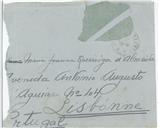 Maria Joanna Queiroga de Almeida
Avenida Antonio Augusto
Aguiar Nº 144
Lisbonne
Portugal